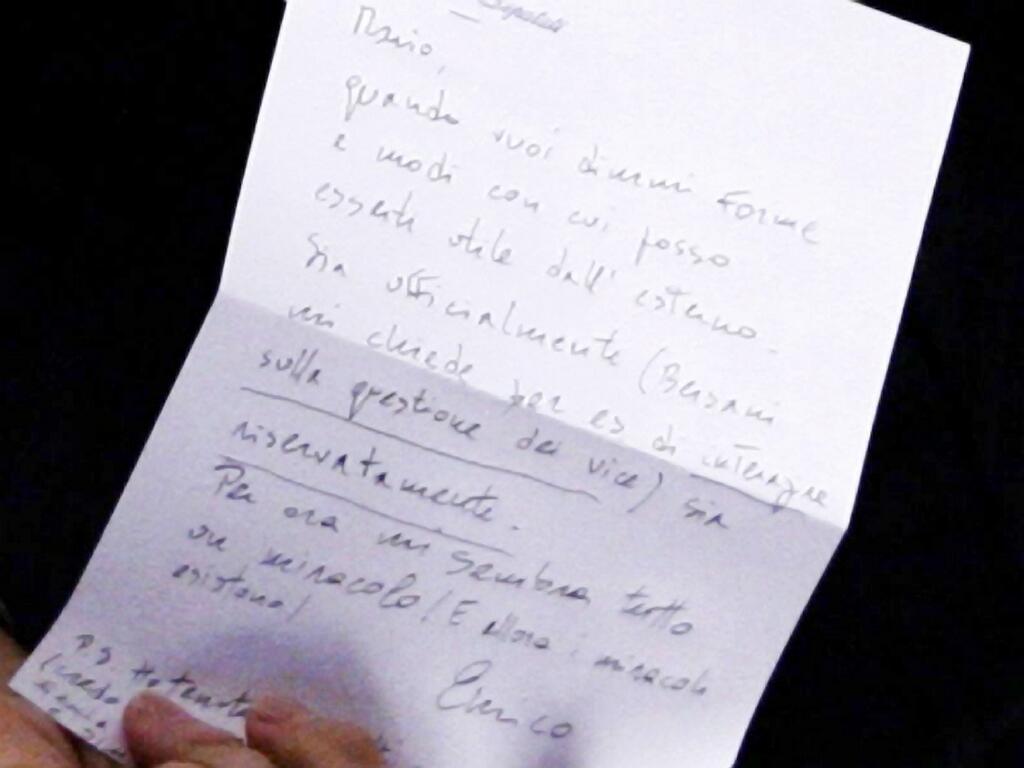 Mario,
quando vuoi dimmi forme
e modi con cui posso
esserti utile dall'esterno.
Sia ufficialmente (Bersani
mi chiede per es di interagire
sulla questione dei vice) sia
riservatamente.
Per ora mi sembra tutto
un miracolo! E allora i miracoli
esistono!
Enrico
PS